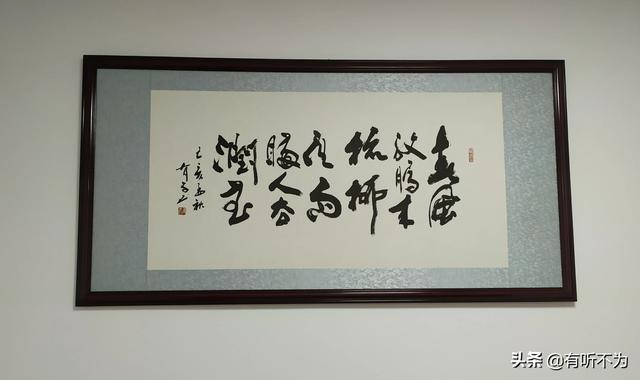 春風
放膽来
梳柳
夜雨
瞞人去
潤花
己亥秋
头条 @有听不为